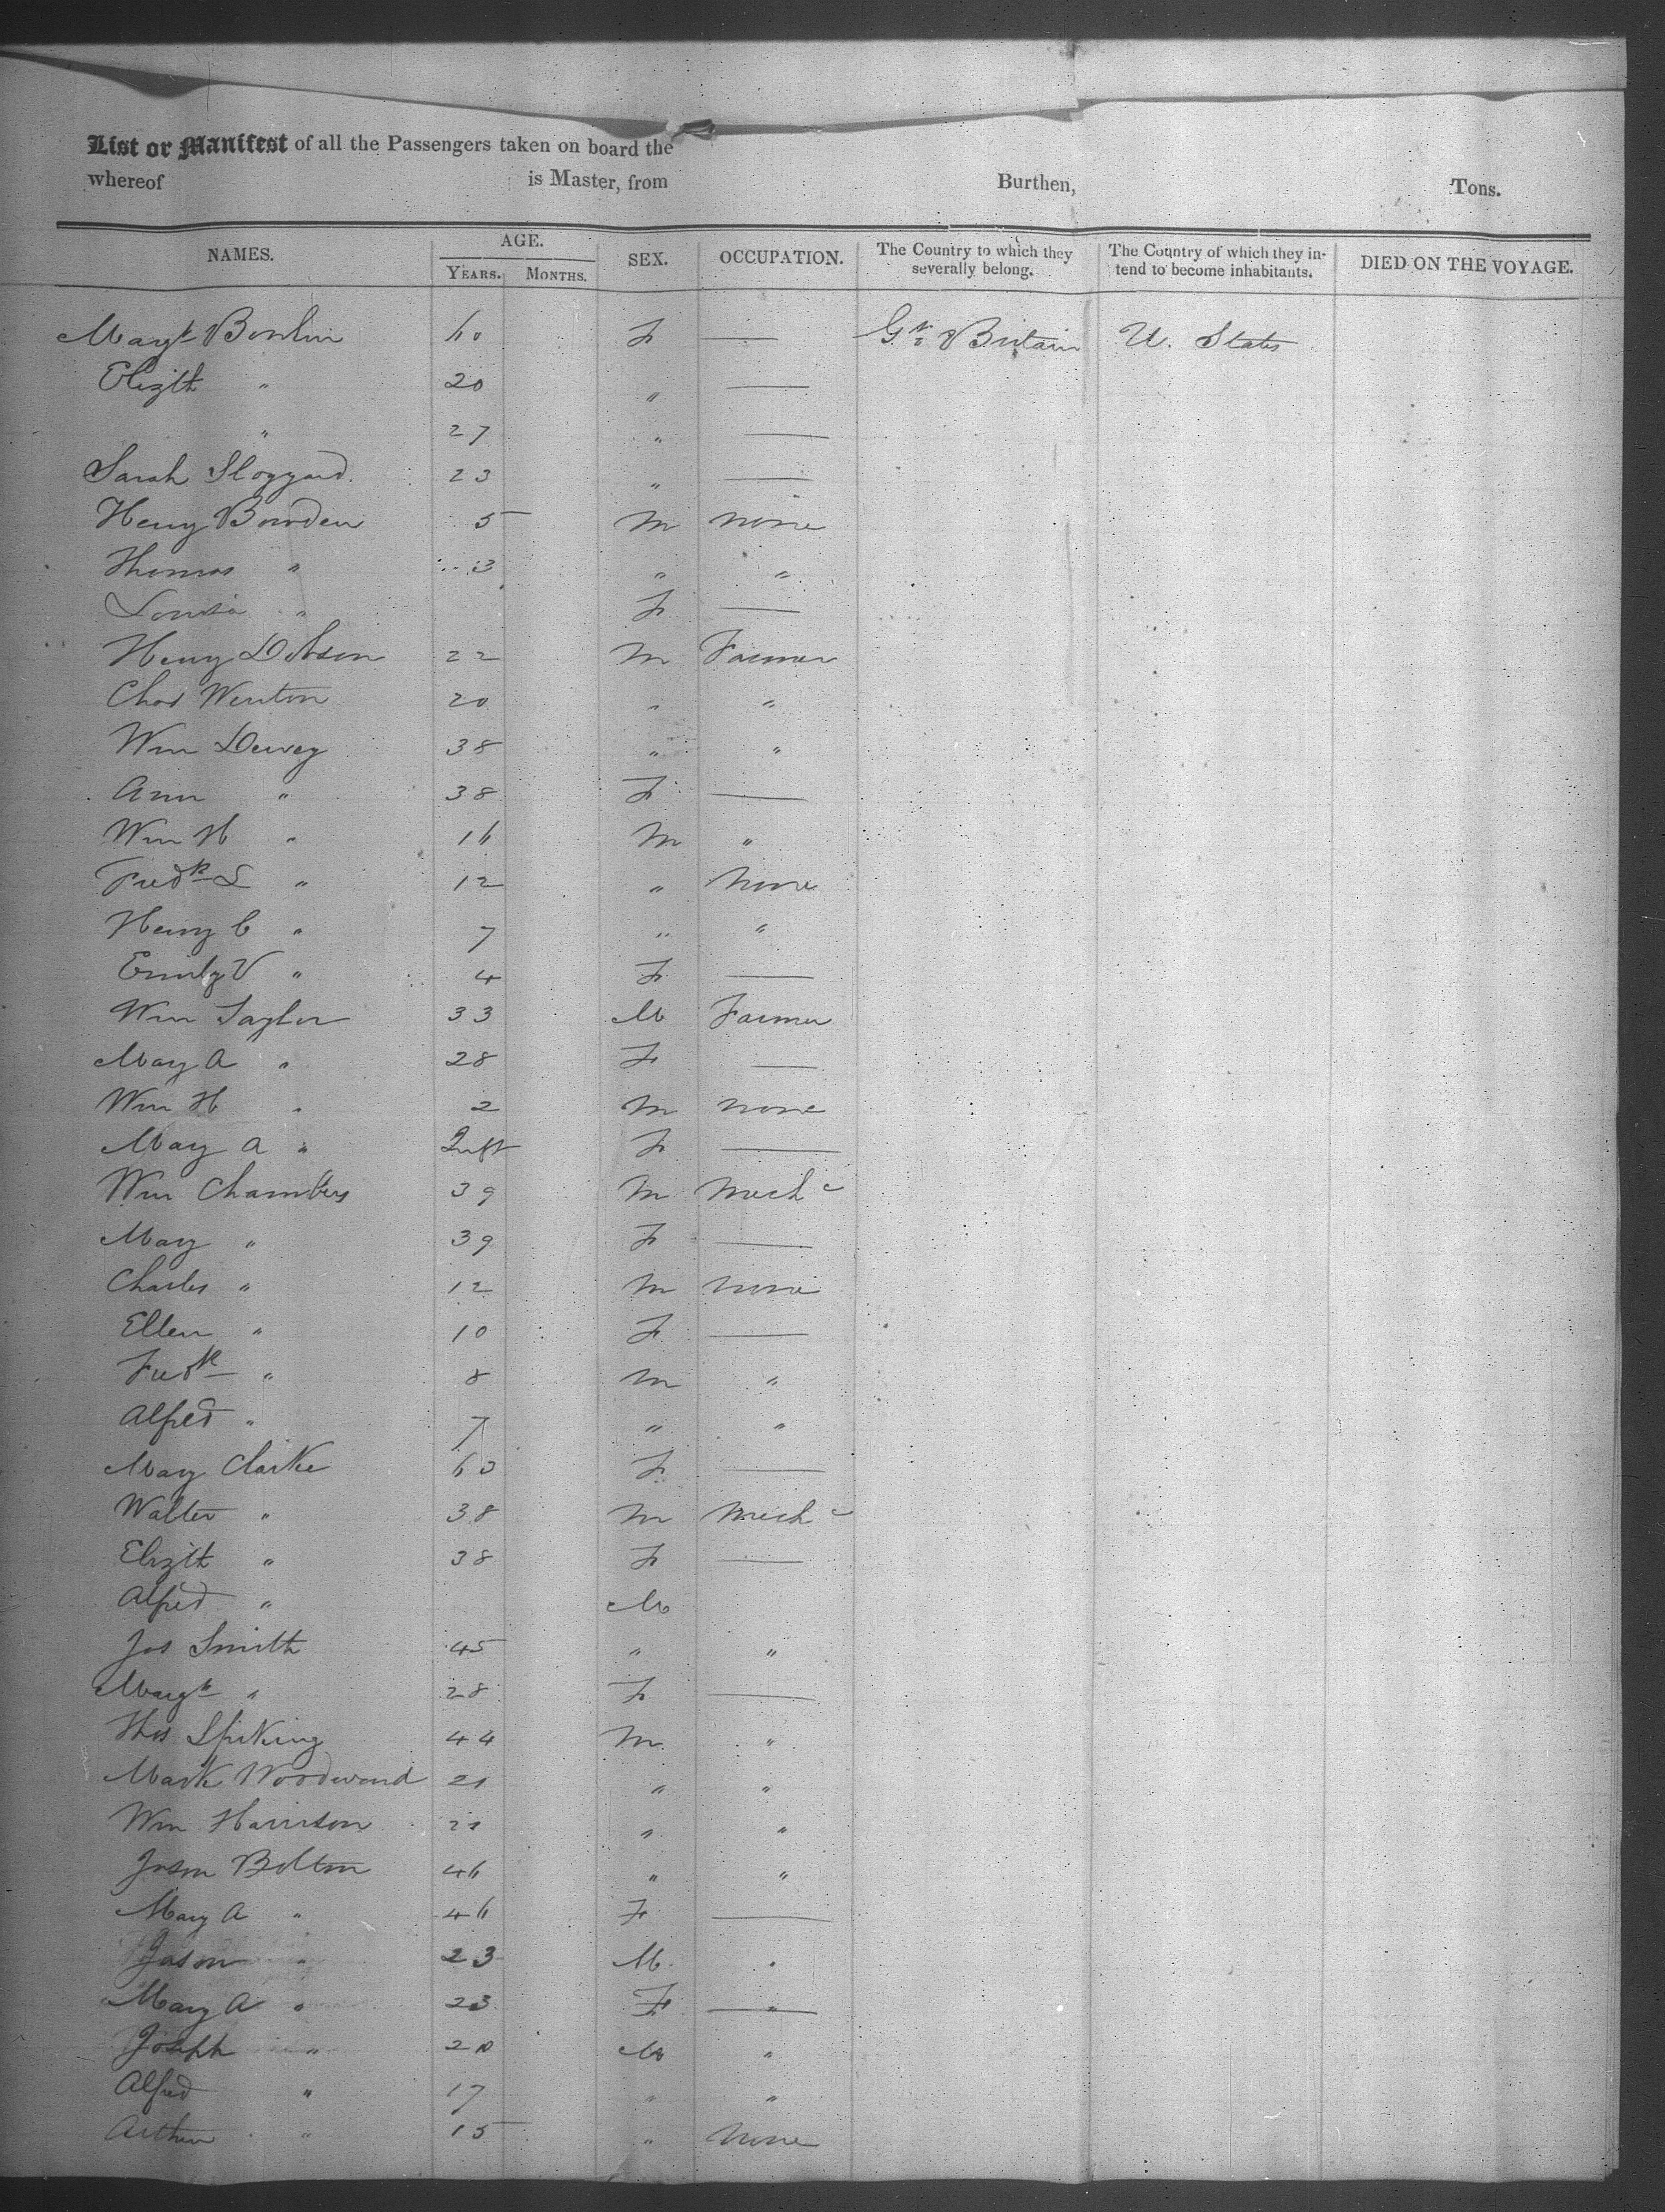 List or Manifest of all the Passengers taken on board the
whereof is Master, from Burthen, Tons.
NAMES. AGE. YEARS. MONTHS. SEX. OCCUPATION. The Country to which they severally belong. The Country of which they intend to become inhabitants. DIED ON THE VOYAGE.
Margt 60 F — Gt Britain U. States
Elizth " 20 " —
" 27 " —
Sarah Sloggard 23 " —
Henry Bowden 5 M none
Thomas " 3 " "
Louisa " F —
Henry Dobson 22 M Farmer
Chas Wenton 20 " "
Wm Dewey 38 " "
Ann " 38 F —
Wm H " 16 M "
Fredk L " 12 " None
Henry C " 7 " "
Emily V " 4 F —
Wm Taylor 33 M Farmer
Mary A " 28 F —
Wm H " 2 M none
Mary A " Inft F —
Wm Chambers 39 M Mechc
Mary " 39 F —
Charles " 12 M none
Ellen " 10 F —
Fredk " 8 M "
Alfred " 7 " "
Mary Clarke 60 F —
Walter " 38 M Mechc
Elizth " 38 F —
Alfred " M
Jos Smith 45 " "
Margt " 28 F —
Thos Spiking 44 M "
Mark Woodward 21 " "
Wm Harrison 21 " "
Jason Bolton 46 " "
Mary A " 46 F —
Jason " 23 M "
Mary A " 23 F — "
Joseph " 20 M "
Alfred " 17 " "
Arthur " 15 " None